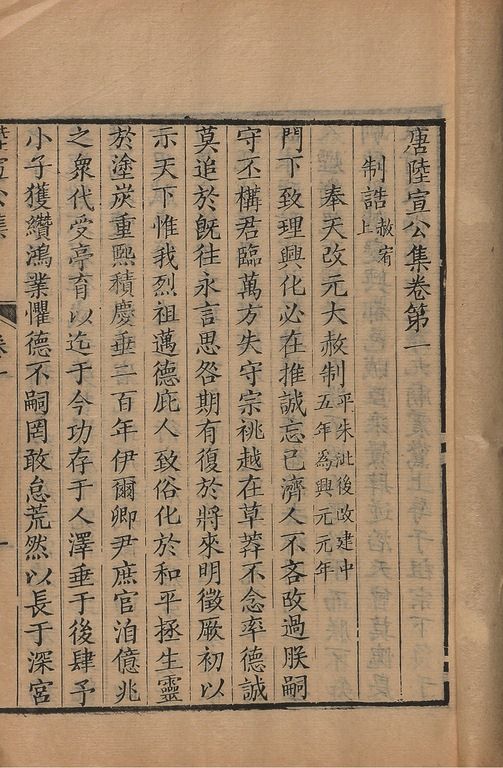 唐陸宣公集卷第一
制誥赦宥上
奉天改元大赦制平朱泚後改建中五年為興元元年
門下致理興化必在推誠忘己濟人不吝改過朕嗣
守丕構君臨萬方失守宗祧越在草莽不念率德誠
莫追於既往永言思咎期有復於將來明徵厥初以
示天下惟我烈祖邁德庇人致俗化於和平拯生靈
於塗炭重熙積慶垂二百年伊爾卿尹庶官洎億兆
之衆代受亭育以迄于今功存于人澤垂于後肆予
小子獲纘鴻業懼德不嗣罔敢怠荒然以長于深宮
陸宣公集 卷一 一